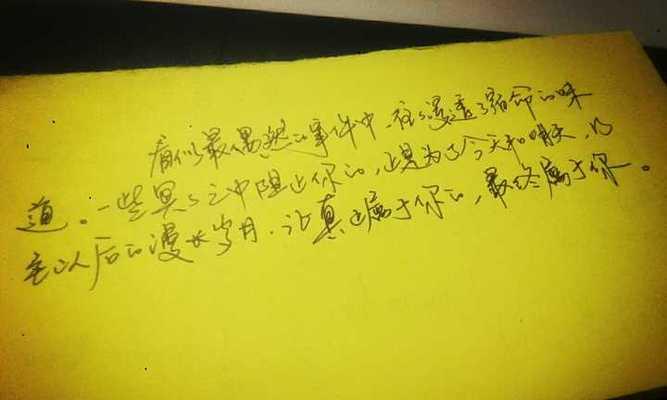 看似最偶然的事件中，往往浸透了宿命的味
道。一些冥冥之中阻止你的，正是为了今天和明天，乃
至以后的漫长岁月，让真正属于你的，最终属于你。